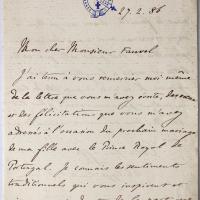 27. 2. 86
Mon cher Monsieur Fauvel
J'ai tenu à vous remercier moi même
de la lettre que vous m'avez écrite, des vœux
et des félicitations que vous m'avez
adressés à l'occasion du prochain mariage
de ma fille avec le Prince Royal de
Portugal. Je connais les sentiments
traditionnels qui vous inspirent et